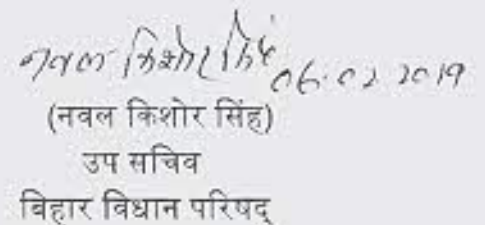 नवल किशोर सिंह 06.02.2019
(नवल किशोर सिंह)
उप सचिव
बिहार विधान परिषद्